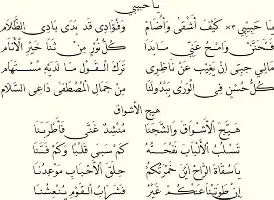 يا حبيبي
يا حبيبي ٣× كيف أشقى وأضام وفؤادي قد بدى بادي الظلام
فتحنن وامح عني ما بدا كل نور من ثنا خير الأنام
مالي حيى إن يغيب عن ناظري ترك القول ما لديه مستهام
كل حسن في الورى يبدو لنا من جمال المصطفى داعي السلام
هيج الأشواق
هيج الأشواق والشجنا منشد غنى فأطربنا
تسلب الألباب نغمته كم سبى قلبًا وكم فتنا
يا سقاة الراح أين خمرتكم حلق الأحباب موعدنا
إن طوينا عنكم غير فشراب القوم ينعشنا